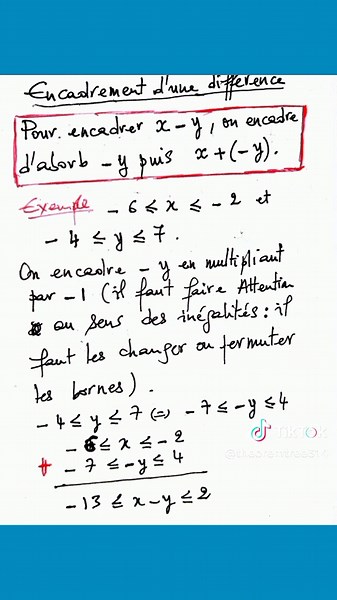 Encadrement d'une différence
Pour encadrer x - y, on encadre
d'abord - y puis x + (-y).
Exemple - 6 ≤ x ≤ - 2 et
- 4 ≤ y ≤ 7.
On encadre - y en multipliant
par - 1 (il faut faire Attention
au sens des inégalités : il
faut les changer ou permuter
les bornes).
- 4 ≤ y ≤ 7 (=) - 7 ≤ -y ≤ 4
- 6 ≤ x ≤ - 2
+ - 7 ≤ -y ≤ 4
- 13 ≤ x - y ≤ 2
TikTok